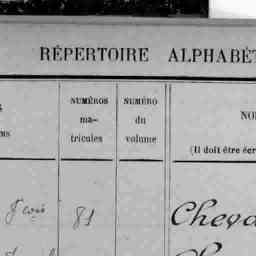 RÉPERTOIRE ALPHABÉT
NUMÉROS
ma-
tricules
NUMÉRO
du
volume
NO
(Il doit être écr
MS
Fçois 81 Cheva